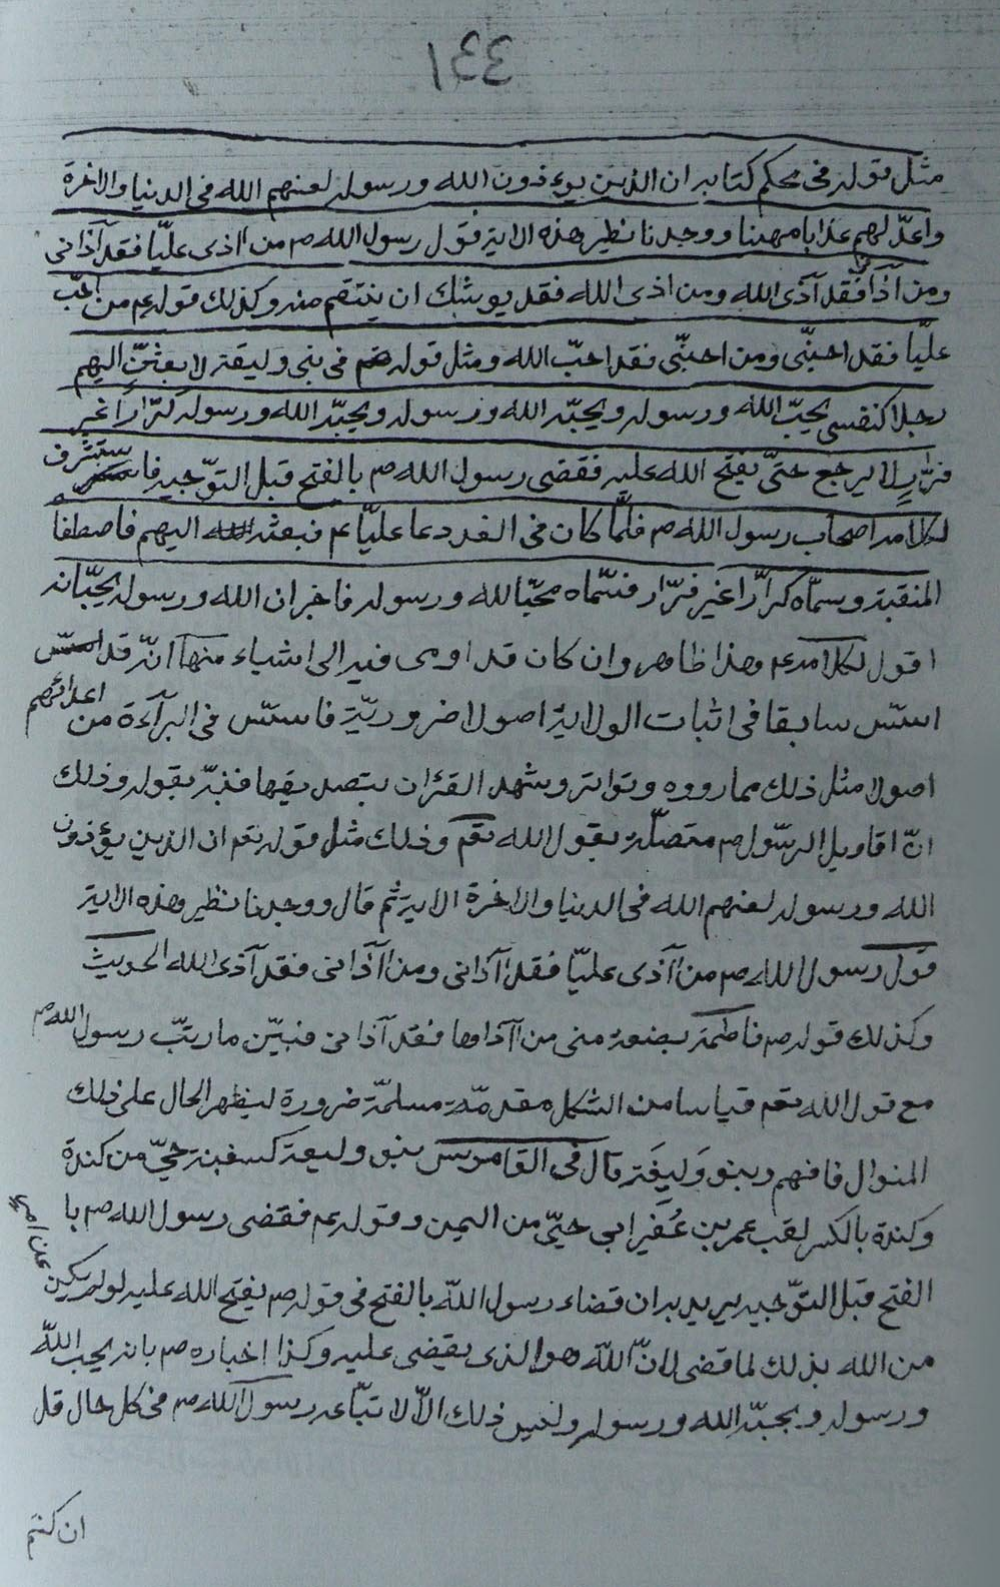 ١٤٤
مثل قوله في محكم كتابه ان الذين يوءذون الله ورسوله لعنهم الله في الدنيا والاخرة
واعدّ لهم عذابا مهينا ووجدنا نظير هذه الاية قول رسول الله ص من اذى عليّا فقد آذاني
ومن آذاني فقد آذى الله ومن اذى الله فقد يوشك ان ينتقم منه وكذلك قوله ع من احبّ
عليّا فقد احبنّي ومن احبنّي فقد احبّ الله ومثل قوله ص في بني وليقة لابعثنّ اليهم
رجلا كنفسي يحبّ الله ورسوله ويحبّه الله ورسوله ويحبّه الله ورسوله كرّارا غير
فرّار لا يرجع حتّى يفتح الله عليه فقضى رسول الله ص بالفتح قبل التوّجيه فاستشرف
لكلامه اصحاب رسول الله ص فلمّا كان في الغد دعا عليّا ع فبعثه اليهم فاصطفا
المنقبة وسمّاه كرّارا غير فرّار فسّماه محّبا لله ورسوله فاخبر ان الله ورسوله يحبّانه
اقول لكلامه ع وهذا ظاهر وان كان قد اومى فيه الى اشياء منها انّه قد
اسّس سابقا في اثبات الولاية اصولا ضروريّة فاسّس في البرآءة من اعدائهم
اصولا مثل ذلك مما رووه وتواتر وشهد القرءان بتصديقها فنبّه بقوله وذلك
انّ اقاويل الرسّول ص متصلّة بقول الله تعم وذلك مثل قوله تعم ان الذين يؤذون
الله ورسوله لعنهم الله في الدنيا والاخرة الاية ثم قال ووجدنا نظير هذه الاية
قول رسول الله ص من اآذى عليّا فقد اآذاني ومن اآذاني فقد آذى الله الحديث
وكذلك قوله ص فاطمة بضعة مني من اآذاها فقد آذاني فبيّن ما رتبّ رسول الله ص
مع قول الله تعم قياسا من الشكل مقدمّته مسلمّة ضرورة ليظهر الحال على ذلك
المنوال فافهم وبنو وَليعَة قال في القاموس بنو وليعة كسفينة حيّ من كندة
وكندة بالكسر لقب عمر بن عُفَير ابي حيّ من اليمن وقوله ع فقضى رسول الله ص با
الفتح قبل التوّجيه يريد به ان قضاء رسول الله بالفتح في قوله ص يفتح الله عليه لو لم يكن عن امر
من الله بذلك لما قضى لانّ الله هو الذي يقضى عليه وكذا اخباره ص بانه يحب الله
ورسوله ويحبّه الله ورسوله وليس ذلك الّا لاتبّاعه رسول الله ص في كل حال قل
ان كنتم